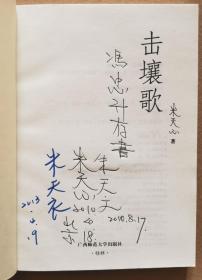 击壤歌
朱天心 著
馮忠升存書
朱天文
2010.8.17.
朱天心
2010
8.18.
北京
朱天衣
2013.4.19
广西师范大学出版社
·桂林·